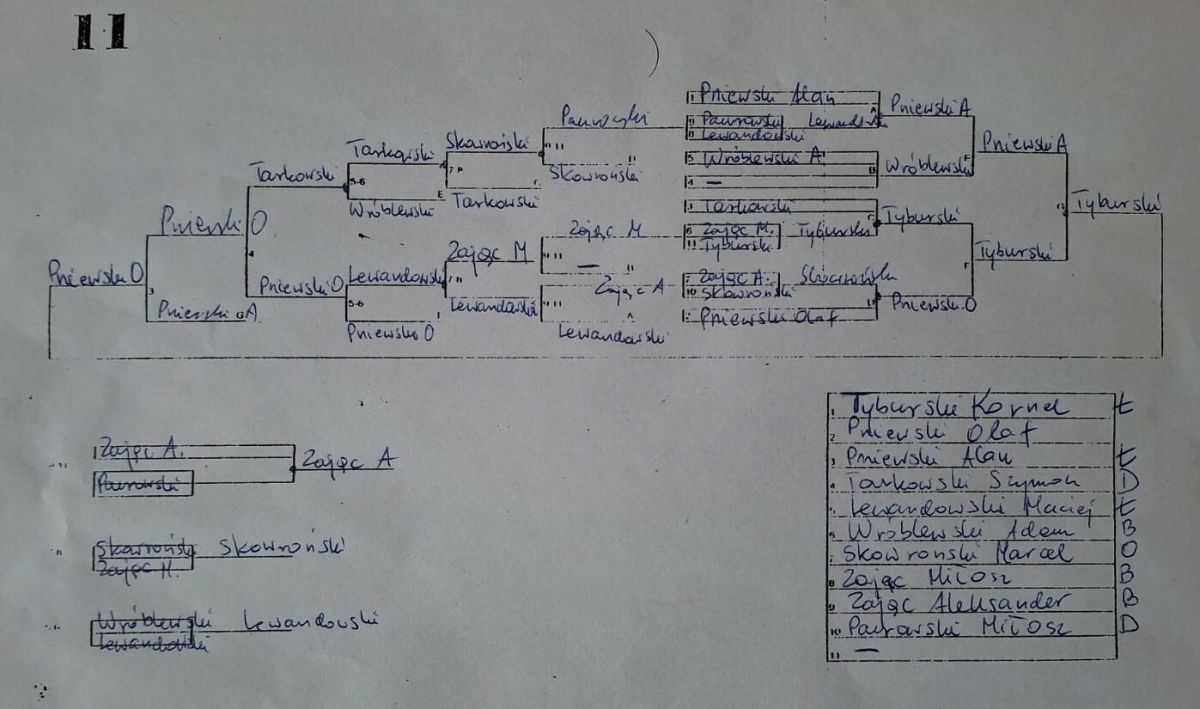 11
Pniewski Alan
Pniewski A
Lewandowski
Lewandowski
Wróblewski A.
Wróblewski
Pniewski A
Tarkowski
Zając M.
Tyburski
Tyburski
Tyburski
Tyburski
Tyburski
Zając A.
Skowroński
Pniewski Olaf
Pniewski O
Skowroński
Skowroński
Tarkowski
Tarkowski
Wróblewski
Tarkowski
Zając M
Zając M
Zając A
Lewandowski
Lewandowski
Lewandowski
Pniewski O
Pniewski O
Pniewski O
Zając A.
Zając A
Skowroński Skowroński
Zając M.
Wróblewski Lewandowski
Lewandowski
1 Tyburski Kornel E
2 Pniewski Olaf
3 Pniewski Alan E
Tarkowski Szymon D
Lewandowski Maciej E
Wróblewski Adam B
Skowronski Marcel O
8 Zając Miłosz B
9 Zając Aleksander B
10 Miłosz D
11 —